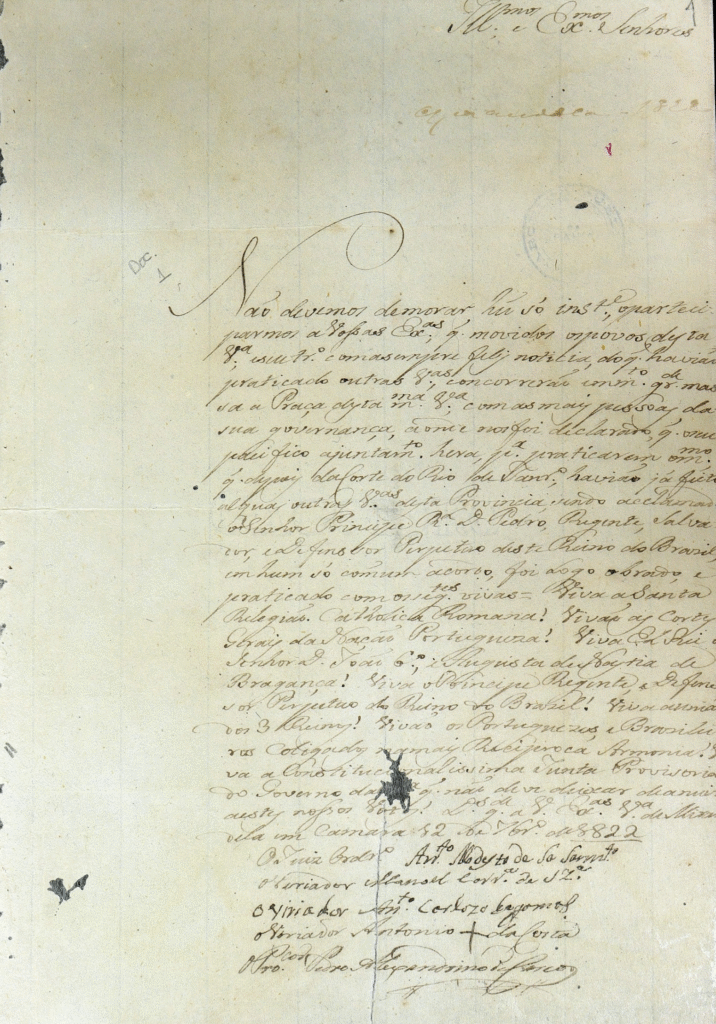 Ill.mos e Ex.mos Senhores
1
1822
Doc.
1
Não devemos demorar hú só inst.e, o partici-
parmos a Vossas Ex.as q. movidos os póvos desta
V.a e seu tr.o com a sempre feliz noticia, do q. havião
praticado outras V.as, concorrerão em m.to gr.de mas-
sa a Praça desta m.ma V.a com as mais pessoas da
sua governança, aonde nos foi declarado, q. o seu
pacifico ajuntam.to hera, p.a praticarem o m.mo
q. depois da Corte do Rio de Janr.o, havião já feito
alguas outras V.as desta Provincia, sendo acclamado
o Senhor Principe R.l D. Pedro, Regente, Salva-
dor, e Defensor Perpetuo deste Reino do Brazil,
em hum só comum acordo, foi logo obrado, e
praticado com os seg.tes vivas = Viva a Santa
Relegião Catholica Romana! Vivão as Cortes
Gerais da Nação Portugueza! Viva El Rei o
Senhor D. João 6.o, e Augusta Denastia de
Bragança! Viva o Principe Regente, e Defen-
sor Perpetuo do Reino do Brazil! Viva a união
dos 3 Reinos! Vivão os Portuguezes, e Brazilei-
ros Coligados na mais Reciproca Armonia! Vi-
va a Constitucionalissima Junta Provisoria
do Governo da q. não deve deixar de anuir
a estes nossos Votos! D.s g.de a V. Ex.as V.a de
em Camara 12 de 7br.o de 1822
O Juiz Ordr.o Ant.o Modesto de Sa Sarm.to
O Veriador Manoel Corr.a de
O Viriador Ant.o Cardozo
O Veriador Antonio + da Costa
O Pro.cor Pedro Alexandrino